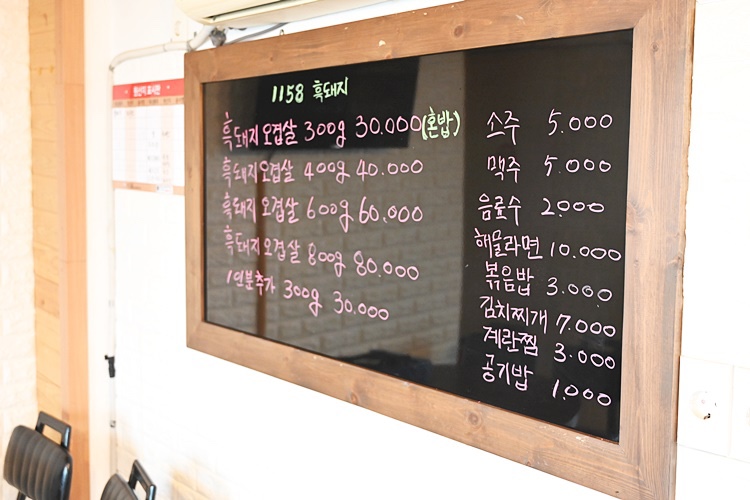 1158 흑돼지
흑돼지오겹살 300g 30.000(혼밥)
흑돼지오겹살 400g 40.000
흑돼지오겹살 600g 60.000
흑돼지오겹살 800g 80.000
1인분추가 300g 30.000
소주 5.000
맥주 5.000
음료수 2.000
해물라면 10.000
볶음밥 3.000
김치찌개 7.000
계란찜 3.000
공기밥 1.000
원산지 표시판